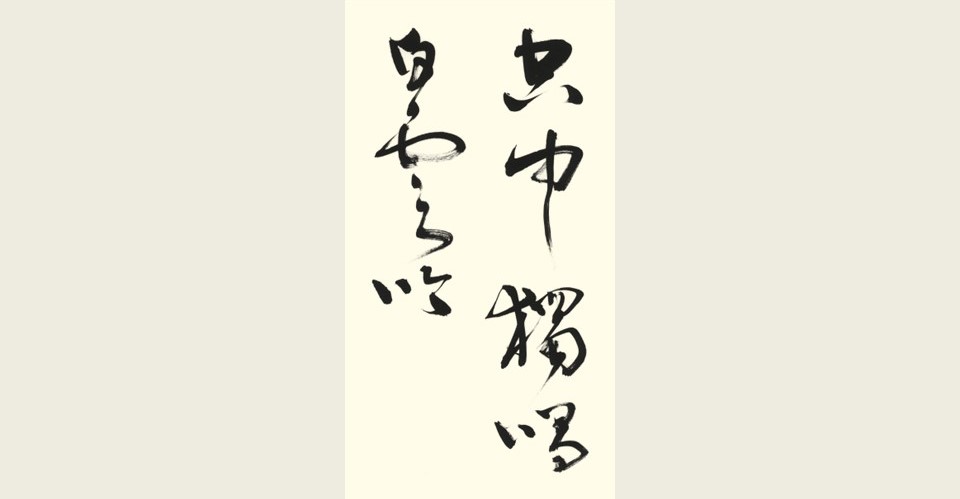 空中獨唱
白雲吟